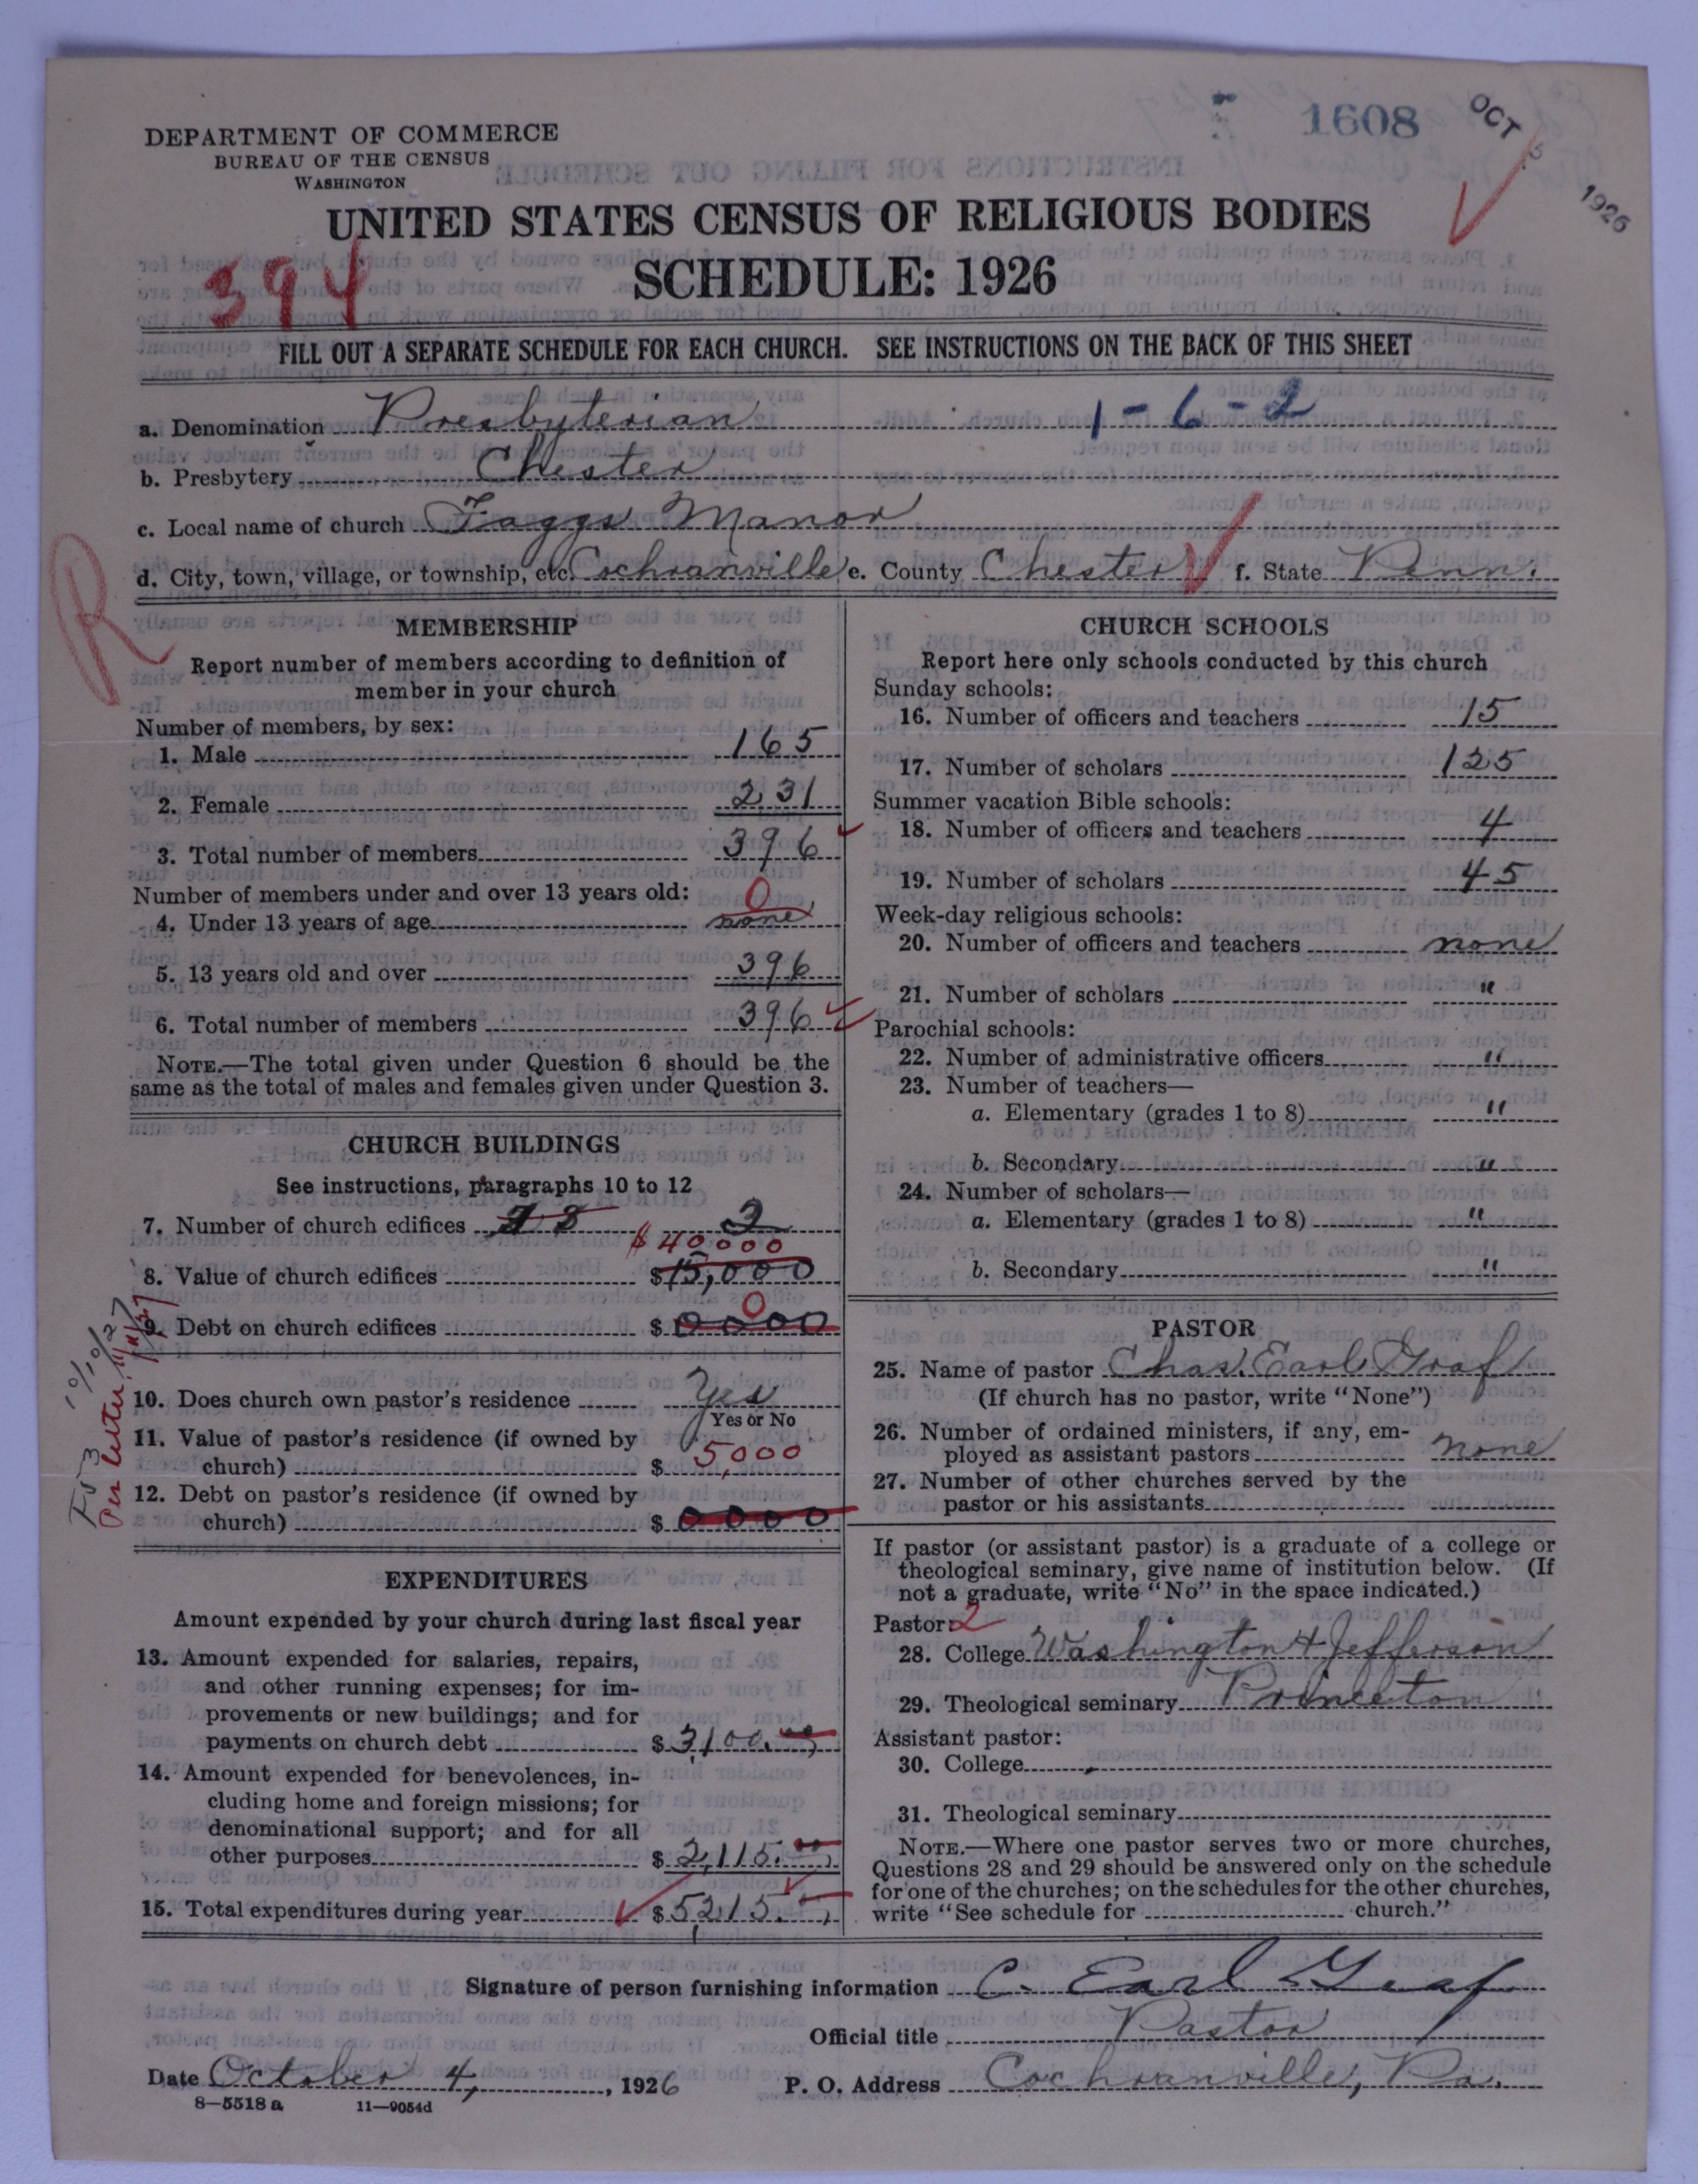 1608
OCT 5 1926
DEPARTMENT OF COMMERCE
BUREAU OF THE CENSUS
WASHINGTON
UNITED STATES CENSUS OF RELIGIOUS BODIES
394
SCHEDULE: 1926
FILL OUT A SEPARATE SCHEDULE FOR EACH CHURCH. SEE INSTRUCTIONS ON THE BACK OF THIS SHEET
a. Denomination Presbyterian 1-6-2
b. Presbytery Chester
c. Local name of church Faggs Manor
d. City, town, village, or township, etc. Cochranville e. County Chester f. State Penn.
R
MEMBERSHIP
Report number of members according to definition of
member in your church
Number of members, by sex:
1. Male 165
2. Female 231
3. Total number of members 396
Number of members under and over 13 years old:
0
4. Under 13 years of age none
5. 13 years old and over 396
6. Total number of members 396
NOTE.—The total given under Question 6 should be the
same as the total of males and females given under Question 3.
CHURCH BUILDINGS
See instructions, paragraphs 10 to 12
7. Number of church edifices 2
$40000
8. Value of church edifices $15,000
0
9. Debt on church edifices $0000
10. Does church own pastor's residence Yes
Yes or No
11. Value of pastor's residence (if owned by
church) $5,000
12. Debt on pastor's residence (if owned by
church) $0000
Per letter 11/11/27
10/10/27
EXPENDITURES
Amount expended by your church during last fiscal year
13. Amount expended for salaries, repairs,
and other running expenses; for im-
provements or new buildings; and for
payments on church debt $3,100.00
14. Amount expended for benevolences, in-
cluding home and foreign missions; for
denominational support; and for all
other purposes $2,115.00
15. Total expenditures during year $5,215.
CHURCH SCHOOLS
Report here only schools conducted by this church
Sunday schools:
16. Number of officers and teachers 15
17. Number of scholars 125
Summer vacation Bible schools:
18. Number of officers and teachers 4
19. Number of scholars 45
Week-day religious schools:
20. Number of officers and teachers none
21. Number of scholars "
Parochial schools:
22. Number of administrative officers "
23. Number of teachers—
a. Elementary (grades 1 to 8) "
b. Secondary "
24. Number of scholars—
a. Elementary (grades 1 to 8) "
b. Secondary "
PASTOR
25. Name of pastor Chas. Earl Graf
(If church has no pastor, write "None")
26. Number of ordained ministers, if any, em-
ployed as assistant pastors none
27. Number of other churches served by the
pastor or his assistants
If pastor (or assistant pastor) is a graduate of a college or
theological seminary, give name of institution below. (If
not a graduate, write "No" in the space indicated.)
Pastor: 2
28. College Washington & Jefferson
29. Theological seminary Princeton
Assistant pastor:
30. College
31. Theological seminary
NOTE.—Where one pastor serves two or more churches,
Questions 28 and 29 should be answered only on the schedule
for one of the churches; on the schedules for the other churches,
write "See schedule for church."
Signature of person furnishing information C. Earl Graf
Official title Pastor
Date October 4, 1926 P. O. Address Cochranville, Pa.
8—5518 a 11—9054d